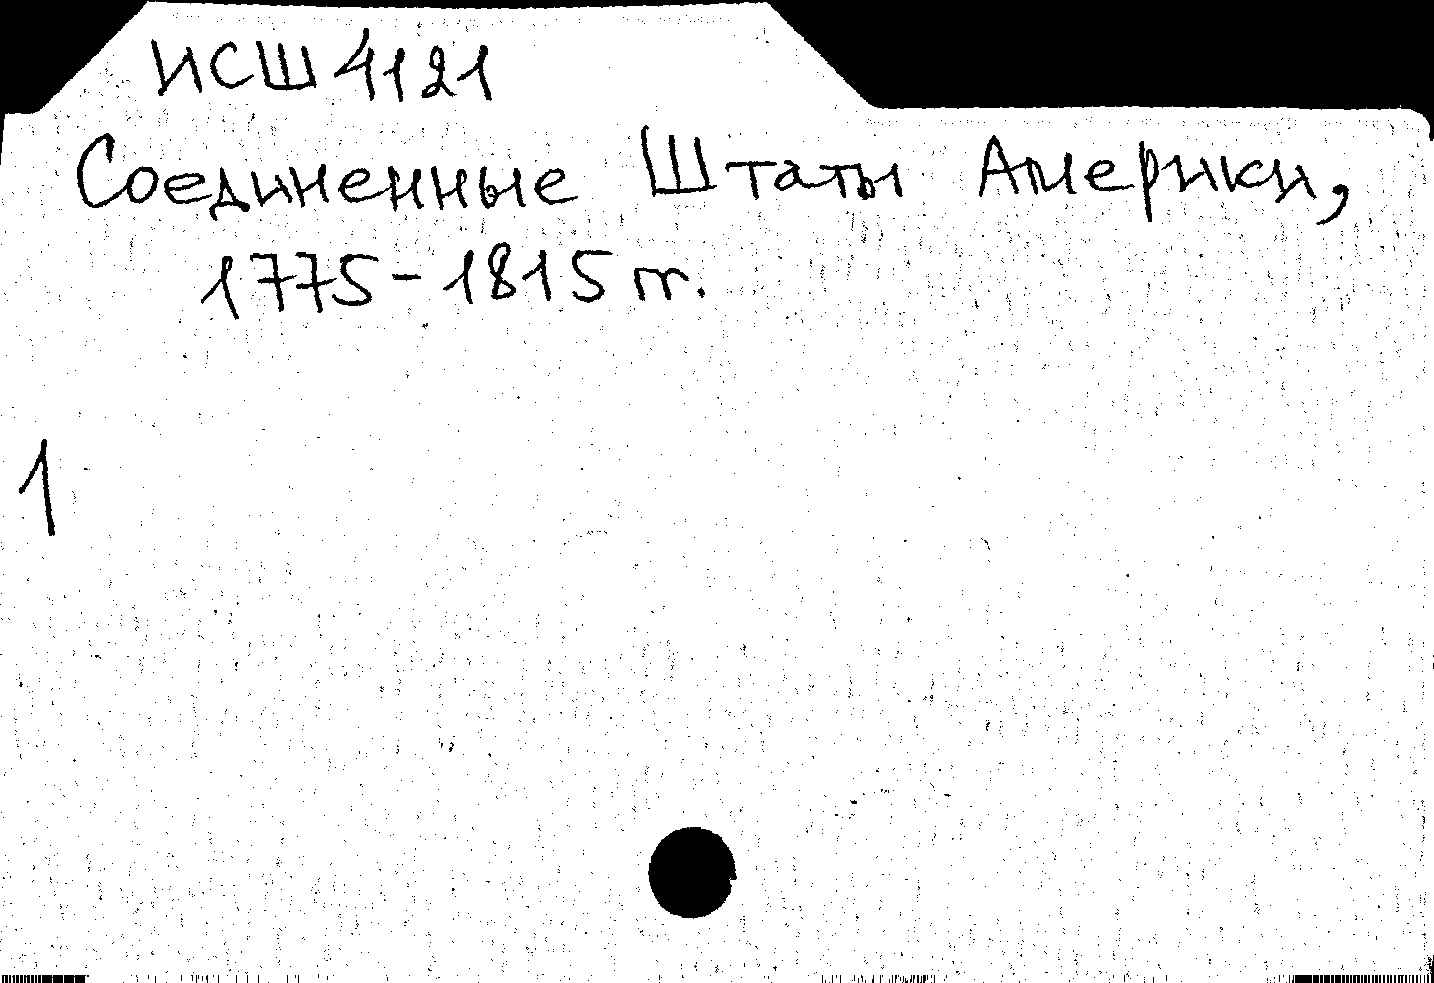 ИСШ 4121
Соединенные Штаты Америки,
1775-1815 гг.
1